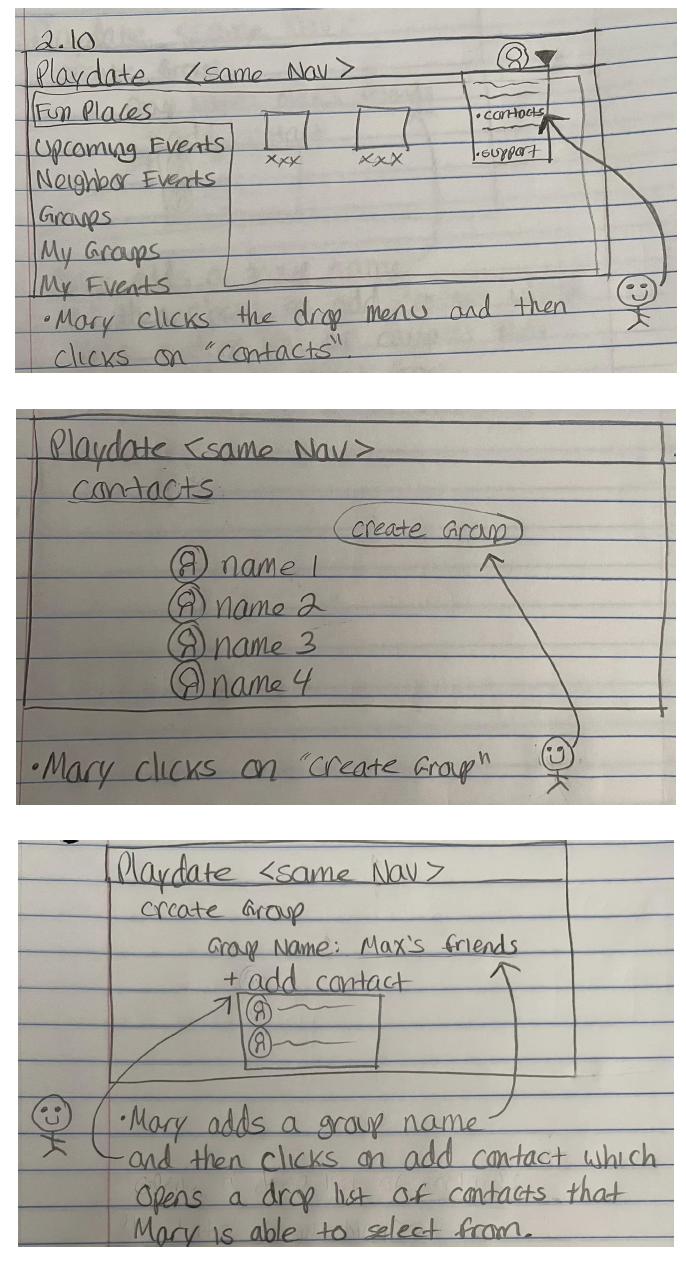 2.10
Playdate <same Nav>
Fun Places
Upcoming Events
Neighbor Events
Groups
My Groups
My Events
xxx
xxx
•contacts
•support
•Mary clicks the drop menu and then
clicks on "contacts".
Playdate <same Nav>
contacts
create Group
name 1
name 2
name 3
name 4
•Mary clicks on "create Group"
Playdate <same Nav>
create Group
Group Name: Max's friends
+ add contact
•Mary adds a group name
and then clicks on add contact which
opens a drop list of contacts that
Mary is able to select from.